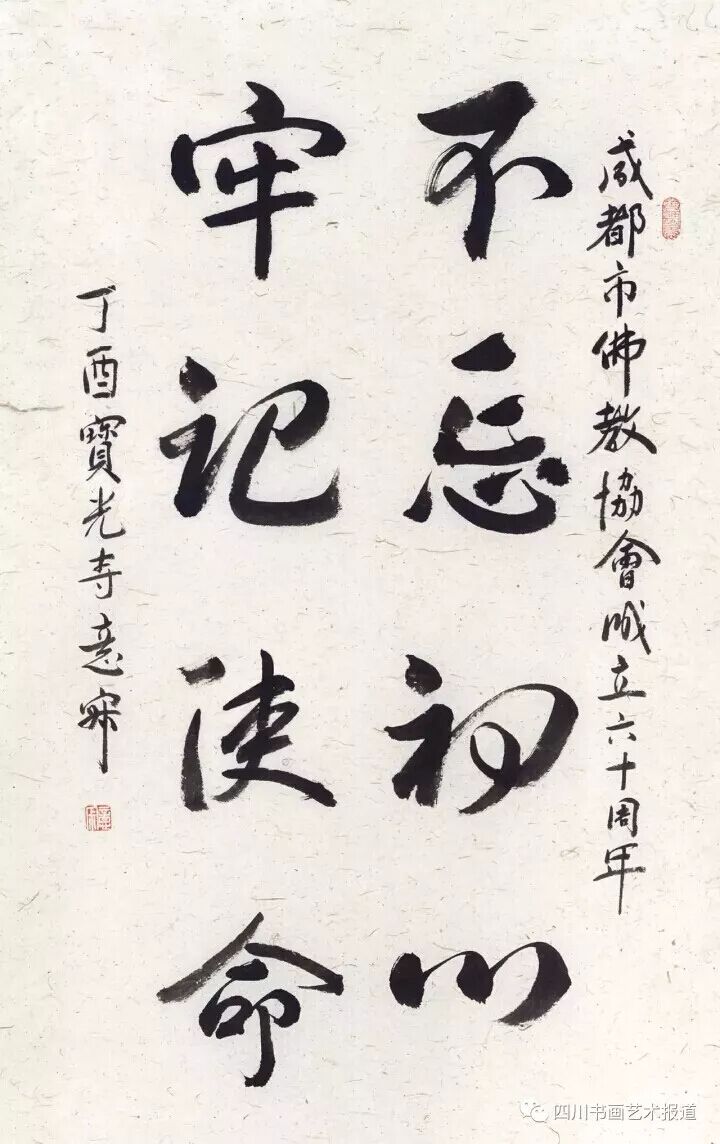 成都市佛教協會成立六十周年
不忘初心
牢記使命
丁酉寶光寺意寂
四川书画艺术报道